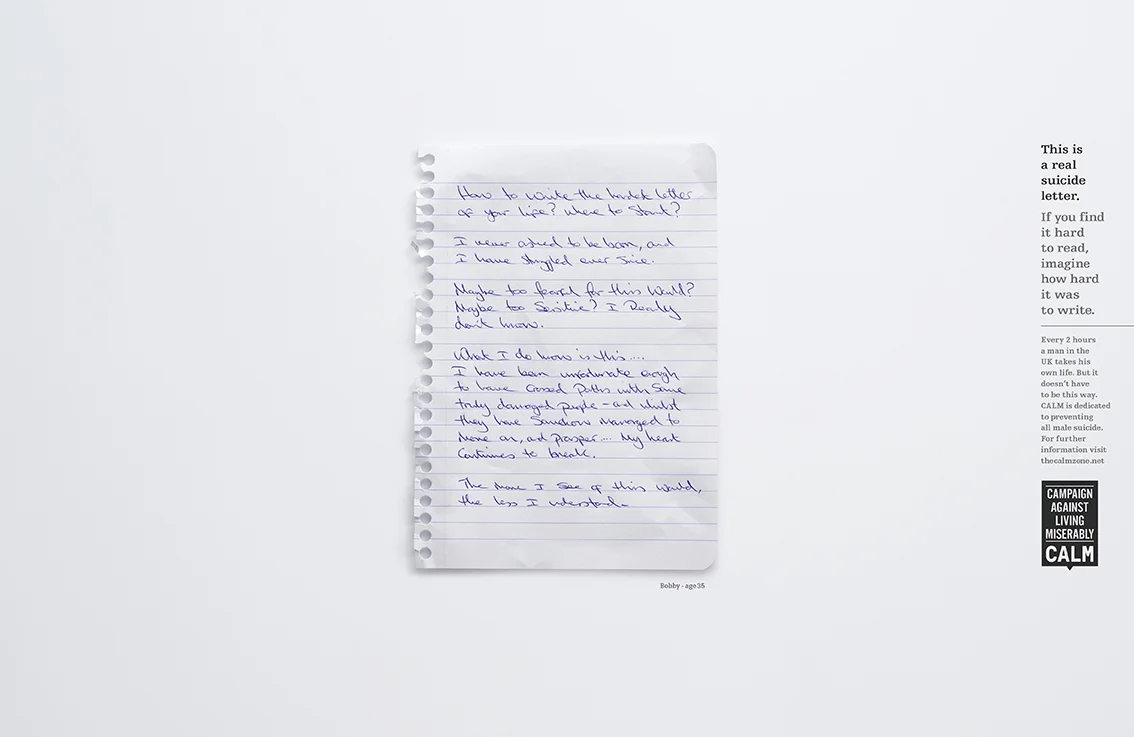 How to write the hardest letter
of your life? Where to Start?
I never asked to be born, and
I have struggled ever since.
Maybe too fearful for this World?
Maybe too Sensitive? I Really
don't know.
What I do know is this....
I have been unfortunate enough
to have crossed Paths with Some
truly damaged people - and whilst
they have Somehow managed to
Move on, and prosper.... My heart
Continues to break.
The more I See of this World,
the less I understand-
Bobby - age 35
This is
a real
suicide
letter.
If you find
it hard
to read,
imagine
how hard
it was
to write.
Every 2 hours
a man in the
UK takes his
own life. But it
doesn't have
to be this way.
CALM is dedicated
to preventing
all male suicide.
For further
information visit
thecalmzone.net
CAMPAIGN
AGAINST
LIVING
MISERABLY
CALM